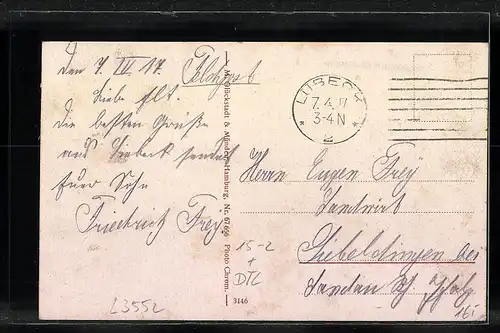 den 7. IV 17.
Feldpost
Liebe Elt.
die besten Grüße
aus Lübeck sendet
Euer Sohn
Friedrich Frey
Glückstadt & Münden, Hamburg. Nr. 67656 Photo Chrom.
3146
LÜBECK
7.4.17
3-4 N
* 2 *
Herrn Eugen Frey
Landwirt
Siebeldingen bei
Landau Pfalz
15-2
+
DTC
L3552
16i